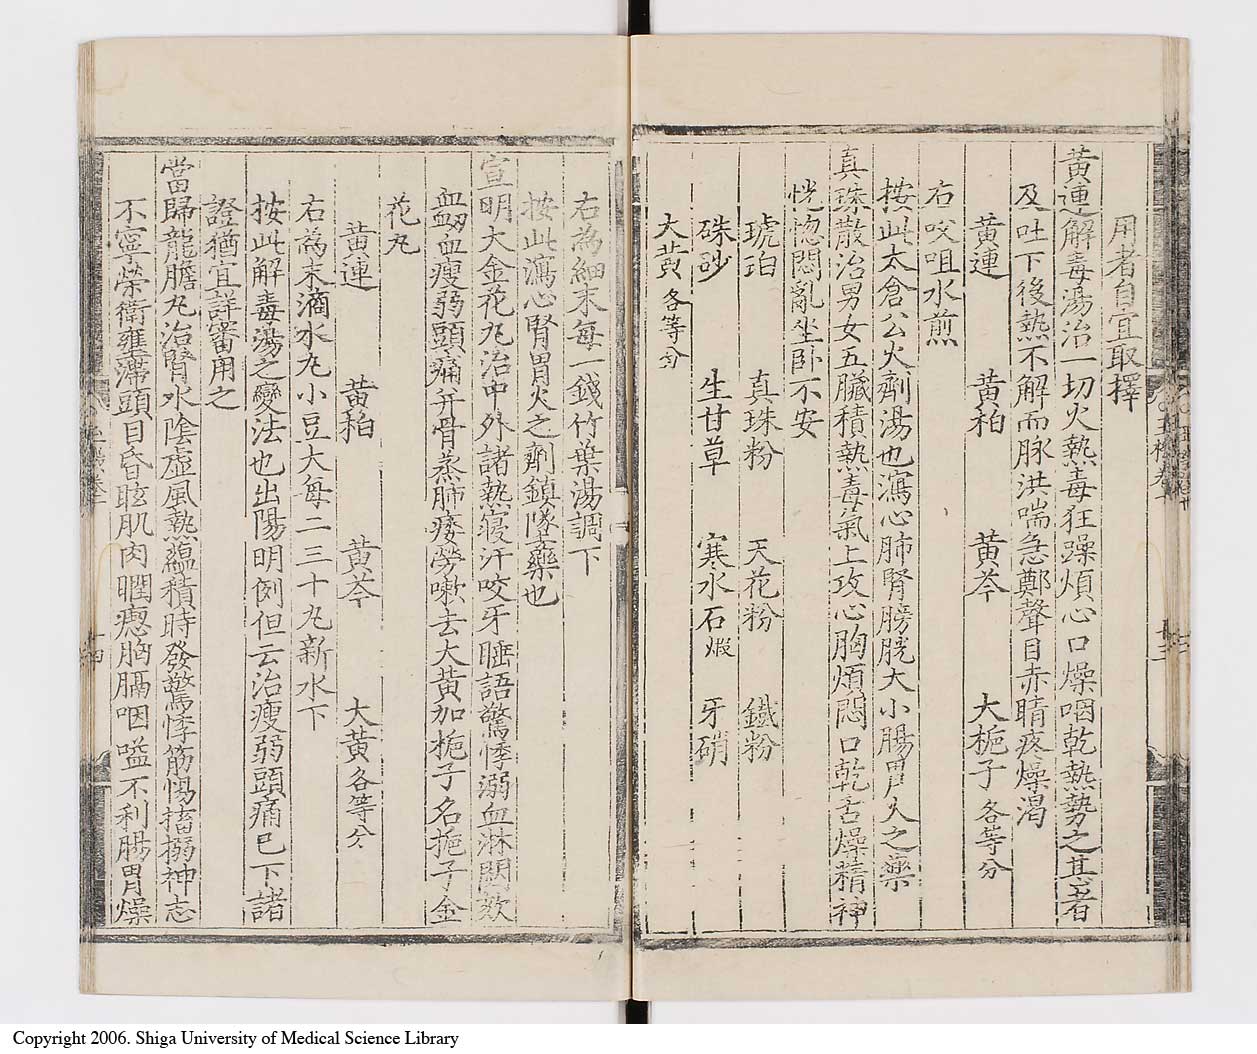 用者自宜取擇
黃連解毒湯治一切火熱毒狂躁煩心口燥咽乾熱勢之甚者
及吐下後熱不解而脉洪喘急鄭聲目赤睛疼燥渴
黃連 黃栢 黃芩 大梔子各等分
右㕮咀水煎
按此太倉公火劑湯也瀉心肺腎膀胱大小腸胃火之藥
真珠散治男女五臟積熱毒氣上攻心胸煩悶口乾舌燥精神
恍惚悶亂坐卧不安
琥珀 真珠粉 天花粉 鐵粉
硃砂 生甘草 寒水石煆 牙硝
大黃各等分
右為細末每一錢竹葉湯調下
按此瀉心腎胃火之劑鎮墜藥也
宣明大金花丸治中外諸熱寢汗咬牙睡語驚悸溺血淋閟欬
血衂血瘦弱頭痛并骨蒸肺痿勞嗽去大黃加梔子名梔子金
花丸
黃連 黃栢 黃芩 大黃各等分
右為末滴水丸小豆大每二三十丸新水下
按此解毒湯之變法也出陽明例但云治瘦弱頭痛已下諸
證猶宜詳審用之
當歸龍膽丸治腎水陰虛風熱蘊積時發驚悸筋惕搐搦神志
不寧榮衛壅滯頭目昏眩肌肉瞤瘛胸膈咽嗌不利腸胃燥
十四
Copyright 2006. Shiga University of Medical Science Library